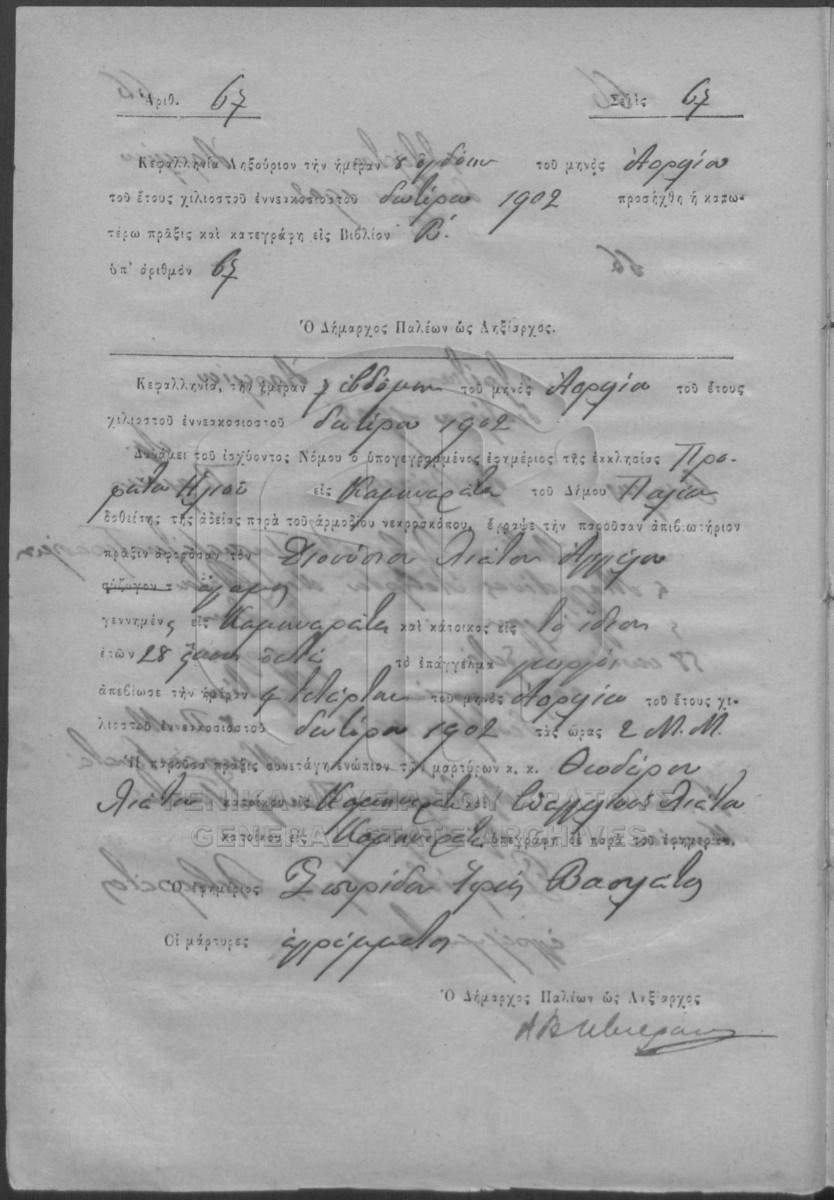 Ἀριθ. 67 Σελὶς 67
Κεφαλληνία Ληξούριον τὴν ἡμέραν 8 ὀγδόην τοῦ μηνὸς Ἀπριλίου
τοῦ ἔτους χιλιοστοῦ ἐννεακοσιοστοῦ δευτέρου 1902 προσήχθη ἡ κατω-
τέρω πρᾶξις καὶ κατεγράφη εἰς Βιβλίον Β΄.
ὑπ' ἀριθμὸν 67
Ὁ Δήμαρχος Παλέων ὡς Ληξίαρχος.
Κεφαλληνία, τὴν ἡμέραν 7 ἑβδόμην τοῦ μηνὸς Ἀπριλίου τοῦ ἔτους
χιλιοστοῦ ἐννεακοσιοστοῦ δευτέρου 1902
Δυνάμει τοῦ ἰσχύοντος Νόμου ὁ ὑπογεγραμμένος ἐφημέριος τῆς ἐκκλησίας Προ-
φήτου Ηλιοῦ εἰς Καμιναράτα τοῦ Δήμου Παλέων
δοθείσης τῆς ἀδείας παρὰ τοῦ ἁρμοδίου νεκροσκόπου, ἔγραψε τὴν παροῦσαν ἀποβιωτήριον
πρᾶξιν ἀφορῶσαν τὸν Διονύσιον Λιάτον Ἀγγέλου
σύζυγον τ ἄγαμος
γεννημένος εἰς Καμιναράτα καὶ κάτοικος εἰς τὸ ἴδιον
ἐτῶν 28 εἴκοσι ὀκτὼ τὸ ἐπάγγελμα γεωργὸς
ἀπεβίωσε τὴν ἡμέραν 4 τετάρτην τοῦ μηνὸς Ἀπριλίου τοῦ ἔτους χι-
λιοστοῦ ἐννεακοσιοστοῦ δευτέρου 1902 τὰς ὥρας 2 Μ.Μ.
Ἡ παροῦσα πρᾶξις συνετάγη ἐνώπιον τῶν μαρτύρων κ. κ. Θεοδώρου
Λιάτου κατοίκου εἰς Καμιναράτα καὶ Εὐαγγελινοῦ Λιάτου
κατοίκου εἰς Καμιναράτα ὑπεγράφη δὲ παρὰ τοῦ ἐφημερίου.
Ὁ ἐφημέριος Σπυρίδων Ἱερεὺς Βασιλάτος
Οἱ μάρτυρες ἀγράμματοι
Ὁ Δήμαρχος Παλέων ὡς Ληξίαρχος
ΓΕΝΙΚΑ ΑΡΧΕΙΑ ΤΟΥ ΚΡΑΤΟΥΣ
GENERAL STATE ARCHIVES